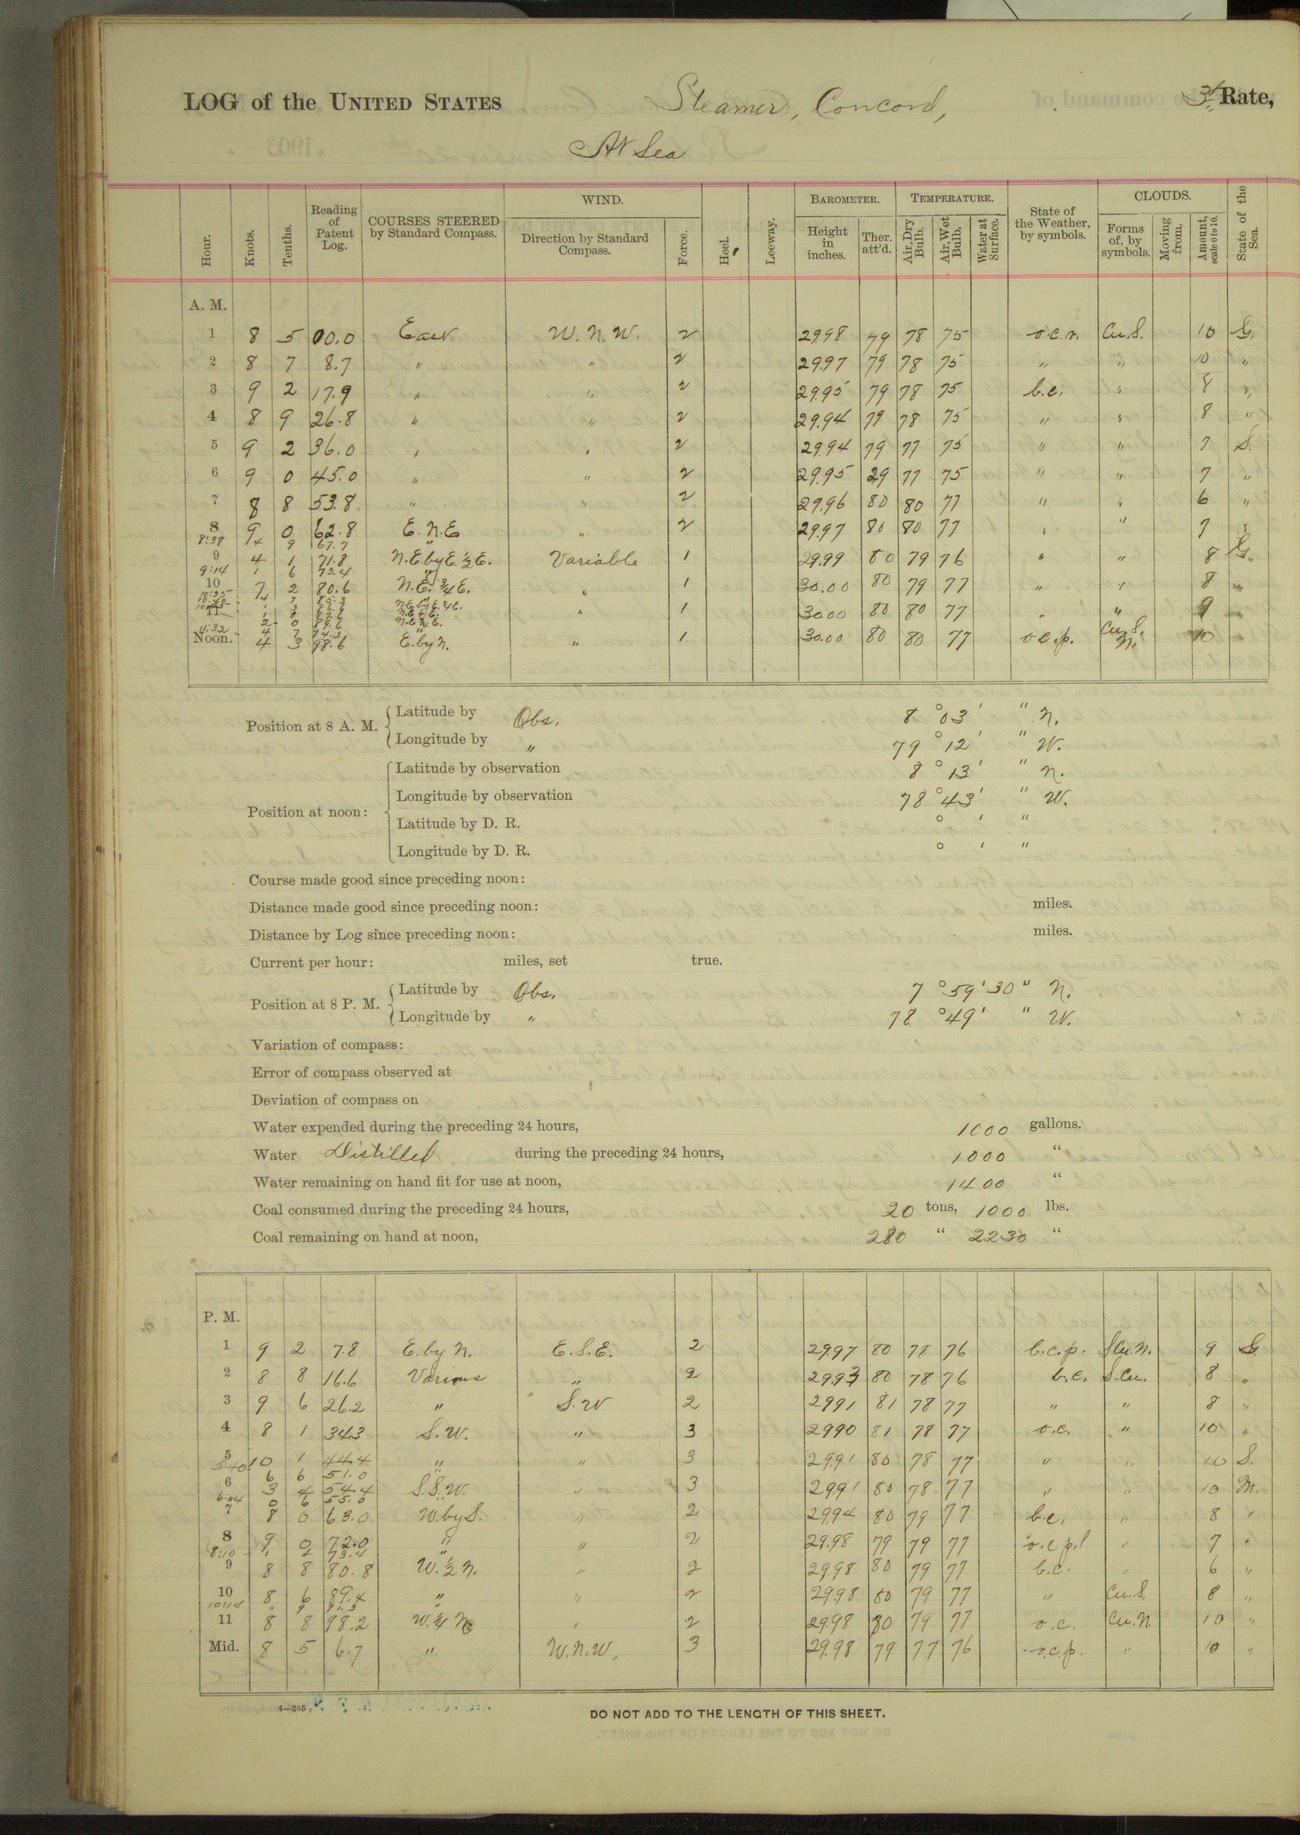 LOG of the UNITED STATES Steamer, Concord, 3d Rate,
At Sea
Hour. Knots. Tenths. Reading of Patent Log. COURSES STEERED by Standard Compass. WIND. Direction by Standard Compass. Force. Heel. Leeway. BAROMETER. Height in inches. Ther. att'd. TEMPERATURE. Air, Dry Bulb. Air, Wet Bulb. Water at Surface. State of the Weather, by symbols. CLOUDS. Forms of, by symbols. Moving from. Amount, scale 0 to 10. State of the Sea.
A. M.
1 8 5 00.0 East. W. N. W. 2 29.98 79 78 75 o.c.r. Cu.S. 10 G.
2 8 7 8.7 " " 2 29.97 79 78 75 " " 10 "
3 9 2 17.9 " " 2 29.95 79 78 75 b.c. " 8 "
4 8 9 26.8 " " 2 29.94 79 78 75 " " 8 "
5 9 2 36.0 " " 2 29.94 79 77 75 " " 7 S.
6 9 0 45.0 " " 2 29.95 29 77 75 " " 7 "
7 8 8 53.8 " " 2 29.96 80 80 77 " " 6 "
8 9 0 62.8 E. N. E " 2 29.97 80 80 77 " " 7 "
8:38 4 9 67.7 "
9 4 1 71.8 N.E. by E. ½ E. Variable 1 29.99 80 79 76 " " 8 G.
9:14 1 6 73.4 "
10 7 2 80.6 N.E. ¾ E. " 1 30.00 80 79 77 " " 8 "
11 " 1 30.00 80 80 77 " " 9 "
2 0 89.6 N.E. ¾ E.
11:32 4 7 94.3 " Cu.S.
Noon. 4 3 98.6 E. by N. " 1 30.00 80 80 77 o.c.p. N. 10 "
Position at 8 A. M. Latitude by Obs. 8 ° 03 ' " N.
Longitude by " 79 ° 12 ' " W.
Position at noon: Latitude by observation 8 ° 13 ' " N.
Longitude by observation 78 ° 43 ' " W.
Latitude by D. R. ° ' "
Longitude by D. R. ° ' "
Course made good since preceding noon:
Distance made good since preceding noon: miles.
Distance by Log since preceding noon: miles.
Current per hour: miles, set true.
Position at 8 P. M. Latitude by Obs. 7 ° 59 ' 30 " N.
Longitude by " 78 ° 49 ' " W.
Variation of compass:
Error of compass observed at
Deviation of compass on
Water expended during the preceding 24 hours, 1000 gallons.
Water Distilled during the preceding 24 hours, 1000 "
Water remaining on hand fit for use at noon, 1400 "
Coal consumed during the preceding 24 hours, 20 tons, 1000 lbs.
Coal remaining on hand at noon, 280 " 2230 "
P. M.
1 9 2 7.8 E. by N. E. S. E. 2 29.97 80 78 76 b.c.p. S.Cu.N. 9 S.
2 8 8 16.6 Various " 2 29.93 80 78 76 b.c. S.Cu. 8 "
3 9 6 26.2 " S. W 2 29.91 81 78 77 " " 8 "
4 8 1 34.3 S. W. " 3 29.90 81 78 77 o.c. " 10 "
5 10 1 44.4 " " 3 29.91 80 78 77 " " 10 S.
5:40 6 6 51.0 "
6 3 4 54.4 S.S.W. " 3 29.91 80 78 77 " " 10 M.
6:04 0 6 55.0 "
7 8 0 63.0 W. by S. " 2 29.94 80 79 77 b.c. " 8 "
8 9 0 72.0 " " 2 29.98 79 79 77 o.c.p.l " 7 "
8:10 1 4 73.4 "
9 8 8 80.8 W. ½ N. " 2 29.98 80 79 77 b.c. " 6 "
10 8 6 89.4 " " 2 29.98 80 79 77 " Cu.S. 8 "
11 8 8 98.2 W. ¼ N " 2 29.98 80 79 77 o.c. Cu.N. 10 "
Mid. 8 5 6.7 " W.N.W. 3 29.98 79 77 76 o.c.p. " 10 "
4—265
DO NOT ADD TO THE LENGTH OF THIS SHEET.